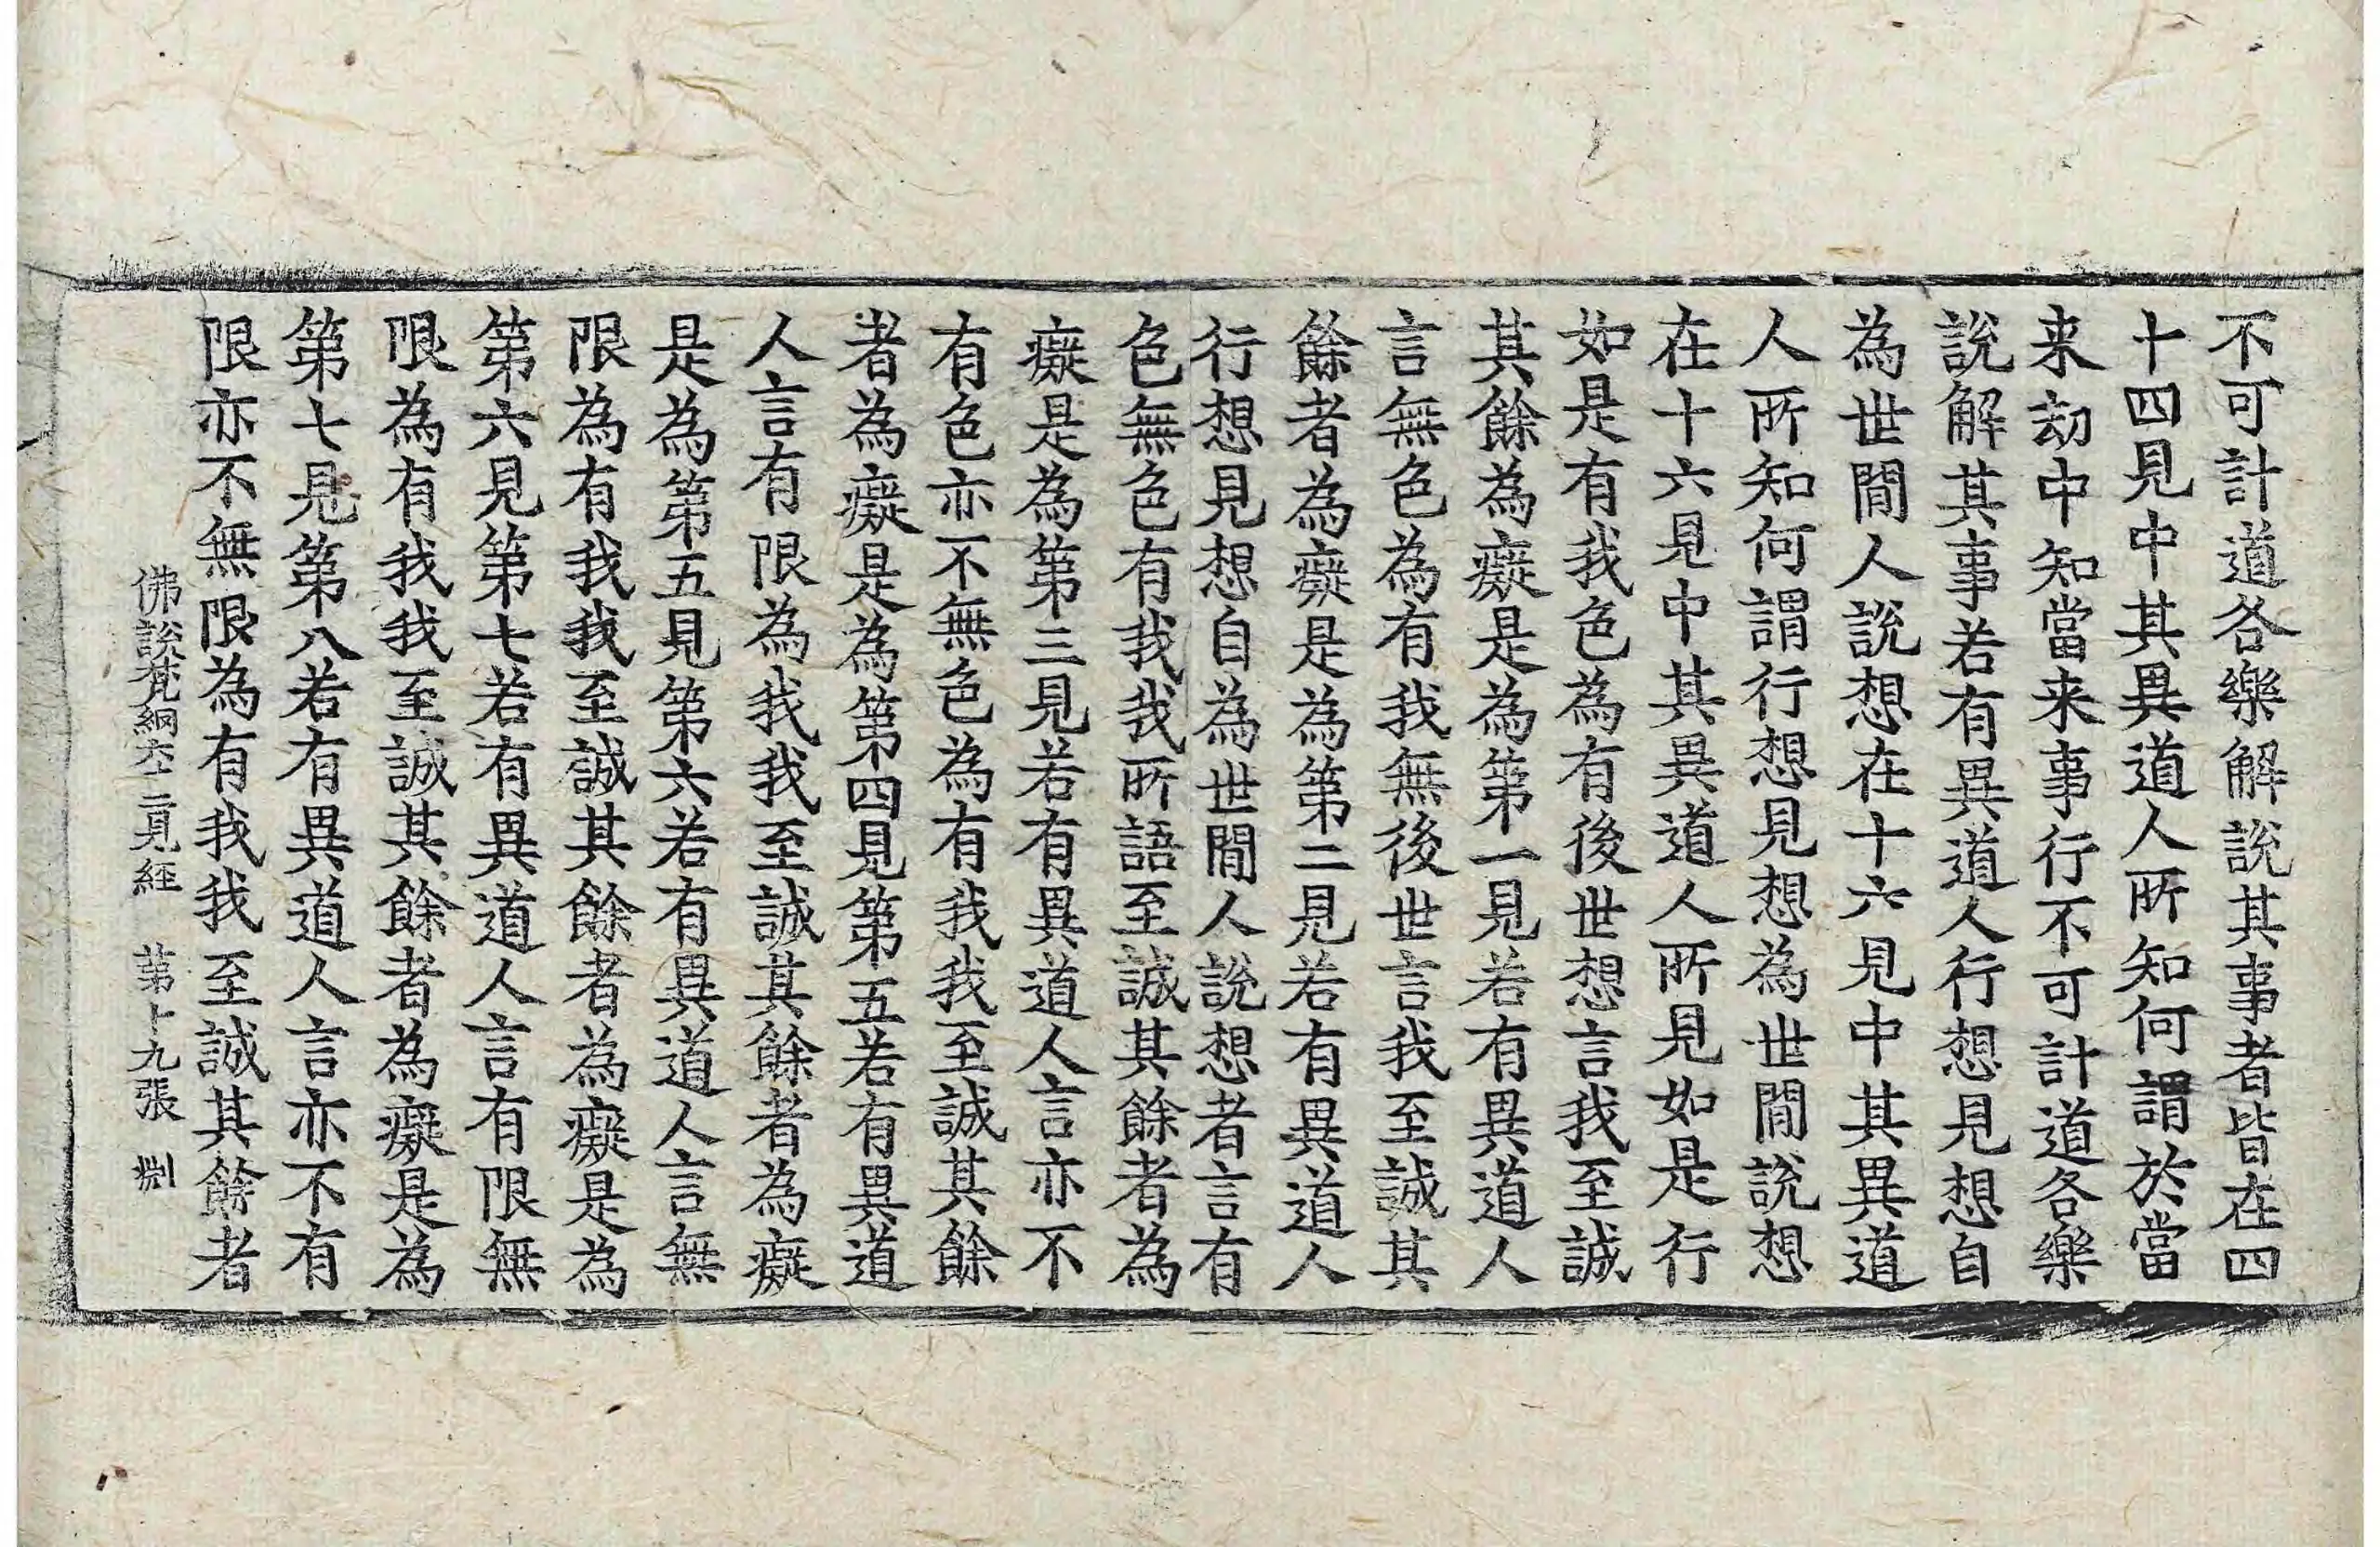 不可計道各樂解說其事者皆在四
十四見中其異道人所知何謂於當
来劫中知當来事行不可計道各樂
說解其事若有異道人行想見想自
為世間人說想在十六見中其異道
人所知何謂行想見想為世間說想
在十六見中其異道人所見如是行
如是有我色為有後世想言我至誠
其餘為癡是為第一見若有異道人
言無色為有我無後世言我至誠其
餘者為癡是為第二見若有異道人
行想見想自為世間人說想者言有
色無色有我我所語至誠其餘者為
癡是為第三見若有異道人言亦不
有色亦不無色為有我我至誠其餘
者為癡是為第四見第五若有異道
人言有限為我我至誠其餘者為癡
是為第五見第六若有異道人言無
限為有我我至誠其餘者為癡是為
第六見第七若有異道人言有限無
限為有我我至誠其餘者為癡是為
第七見第八若有異道人言亦不有
限亦不無限為有我我至誠其餘者
佛說梵網六十二見經 第十九張